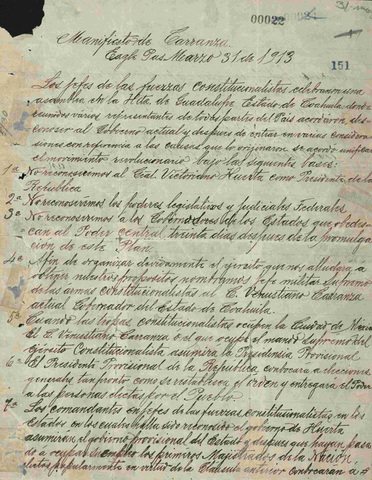 00022
31-
151
Manifiesto de Carranza.
Eagle Pas Marzo 31 de 1913
Los Jefes de las fuerzas constitucionalistas celebraron una
asamblea en la Hda. de Guadalupe Estado de Coahuila donde
reunidos varios representantes de todas partes del Pais acordaron, des-
conocer al Gobierno actual y despues de entrar en varias considera-
siones con referencia a las causas que lo originaron se acordó unificar
el movimiento revolucionario bajo las siguientes bases:
1ª No reconocemos al Gral Victoriano Huerta como Presidente de la
Republica
2ª No reconoseremos los poderes legislativos y Judiciales Federales.
3ª No reconoseremos a los Gobernadores de los Estados que obedes-
can al Poder central, treinta dias despues de la promulga-
cion de este Plan.
4ª Afin de organizar devidamente el ejercito que nos alludara a
obligar nuestros propositos nombramos Jefe militar Supremo
de las armas constitucionalistas al C. Venustiano Carranza
actual Gobernador del Estado de Coahuila.
5ª Cuando las tropas constitucionalistas ocupen la Ciudad de Mexico
El C. Venustiano Carranza o el que ocupe el mando Supremo del
Ejercito Constitucionalista asumira la Presidensia Provisional
6ª El Presidente Provisional de la Republica, convocara a elecciones
generales tan pronto como se restablesca el orden y entregará el Poder
a las personas electas por el Pueblo.
7ª Los comandantes en jefes de las fuerzas constitucionalistas, en los
Estados en los cuales halla sido reconocido el gobierno de Huerta
asumiran el gobierno provisional del Estado y despues que hayan pasa-
do a ocupar su empleo los primeros Magistrados de la Nación,
electos popularmente en virtud de la Clausula anterior convocaran a